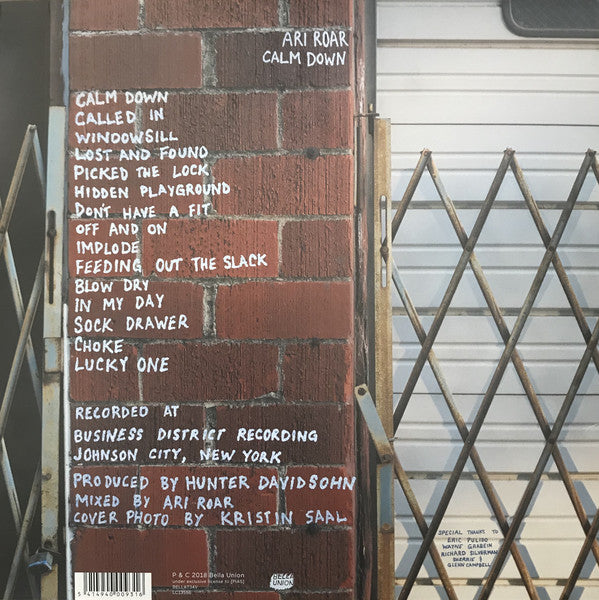 ARI ROAR
CALM DOWN
CALM DOWN
CALLED IN
WINDOWSILL
LOST AND FOUND
PICKED THE LOCK
HIDDEN PLAYGROUND
DON'T HAVE A FIT
OFF AND ON
IMPLODE
FEEDING OUT THE SLACK
BLOW DRY
IN MY DAY
SOCK DRAWER
CHOKE
LUCKY ONE
RECORDED AT
BUSINESS DISTRICT RECORDING
JOHNSON CITY, NEW YORK
PRODUCED BY HUNTER DAVIDSOHN
MIXED BY ARI ROAR
COVER PHOTO BY KRISTIN SAAL
SPECIAL THANKS TO
ERIC PULIDO
WAYNE GRABEIN
RICHARD SILVERMAN
&
GLENN CAMPBELL
P & C 2018 Bella Union
under exclusive license to [PIAS]
BELLA734V
LC13566
BELLA
UNION
5 414940 009316